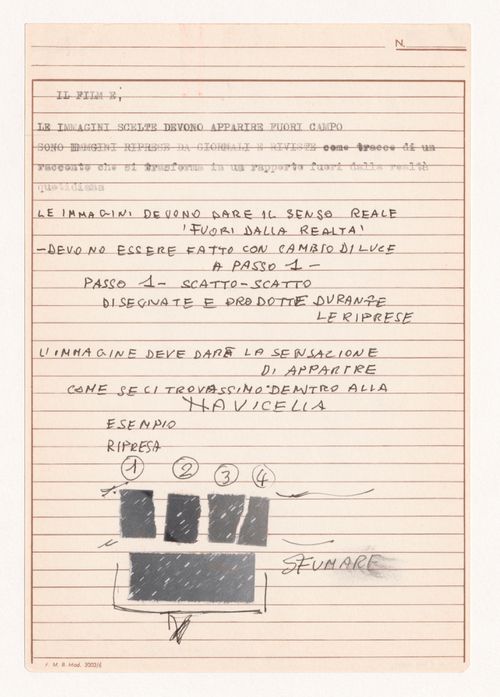 N.
IL FILM E,'
LE IMMAGINI SCELTE DEVONO APPARIRE FUORI CAMPO
SONO IMMGINI RIPRESE DA GIORNALI E RIVISTE come tracce di un
racconto che si trasforma in un rapporto fuori dalla realtà
quotidiana
LE IMMAGINI DEVONO DARE IL SENSO REALE
'FUORI DALLA REALTA'
-DEVONO ESSERE FATTO CON CAMBIO DI LUCE
A PASSO 1-
PASSO 1- SCATTO-SCATTO
DISEGNATE E PRODOTTE DURANTE
LE RIPRESE
L'IMMAGINE DEVE DARE LA SENSAZIONE
DI APPARIRE
COME SE CI TROVASSIMO DENTRO ALLA
NAVICELLA
ESEMPIO
RIPRESA
1 2 3 4
SFUMARE
F. M. B. Mod. 3002/6